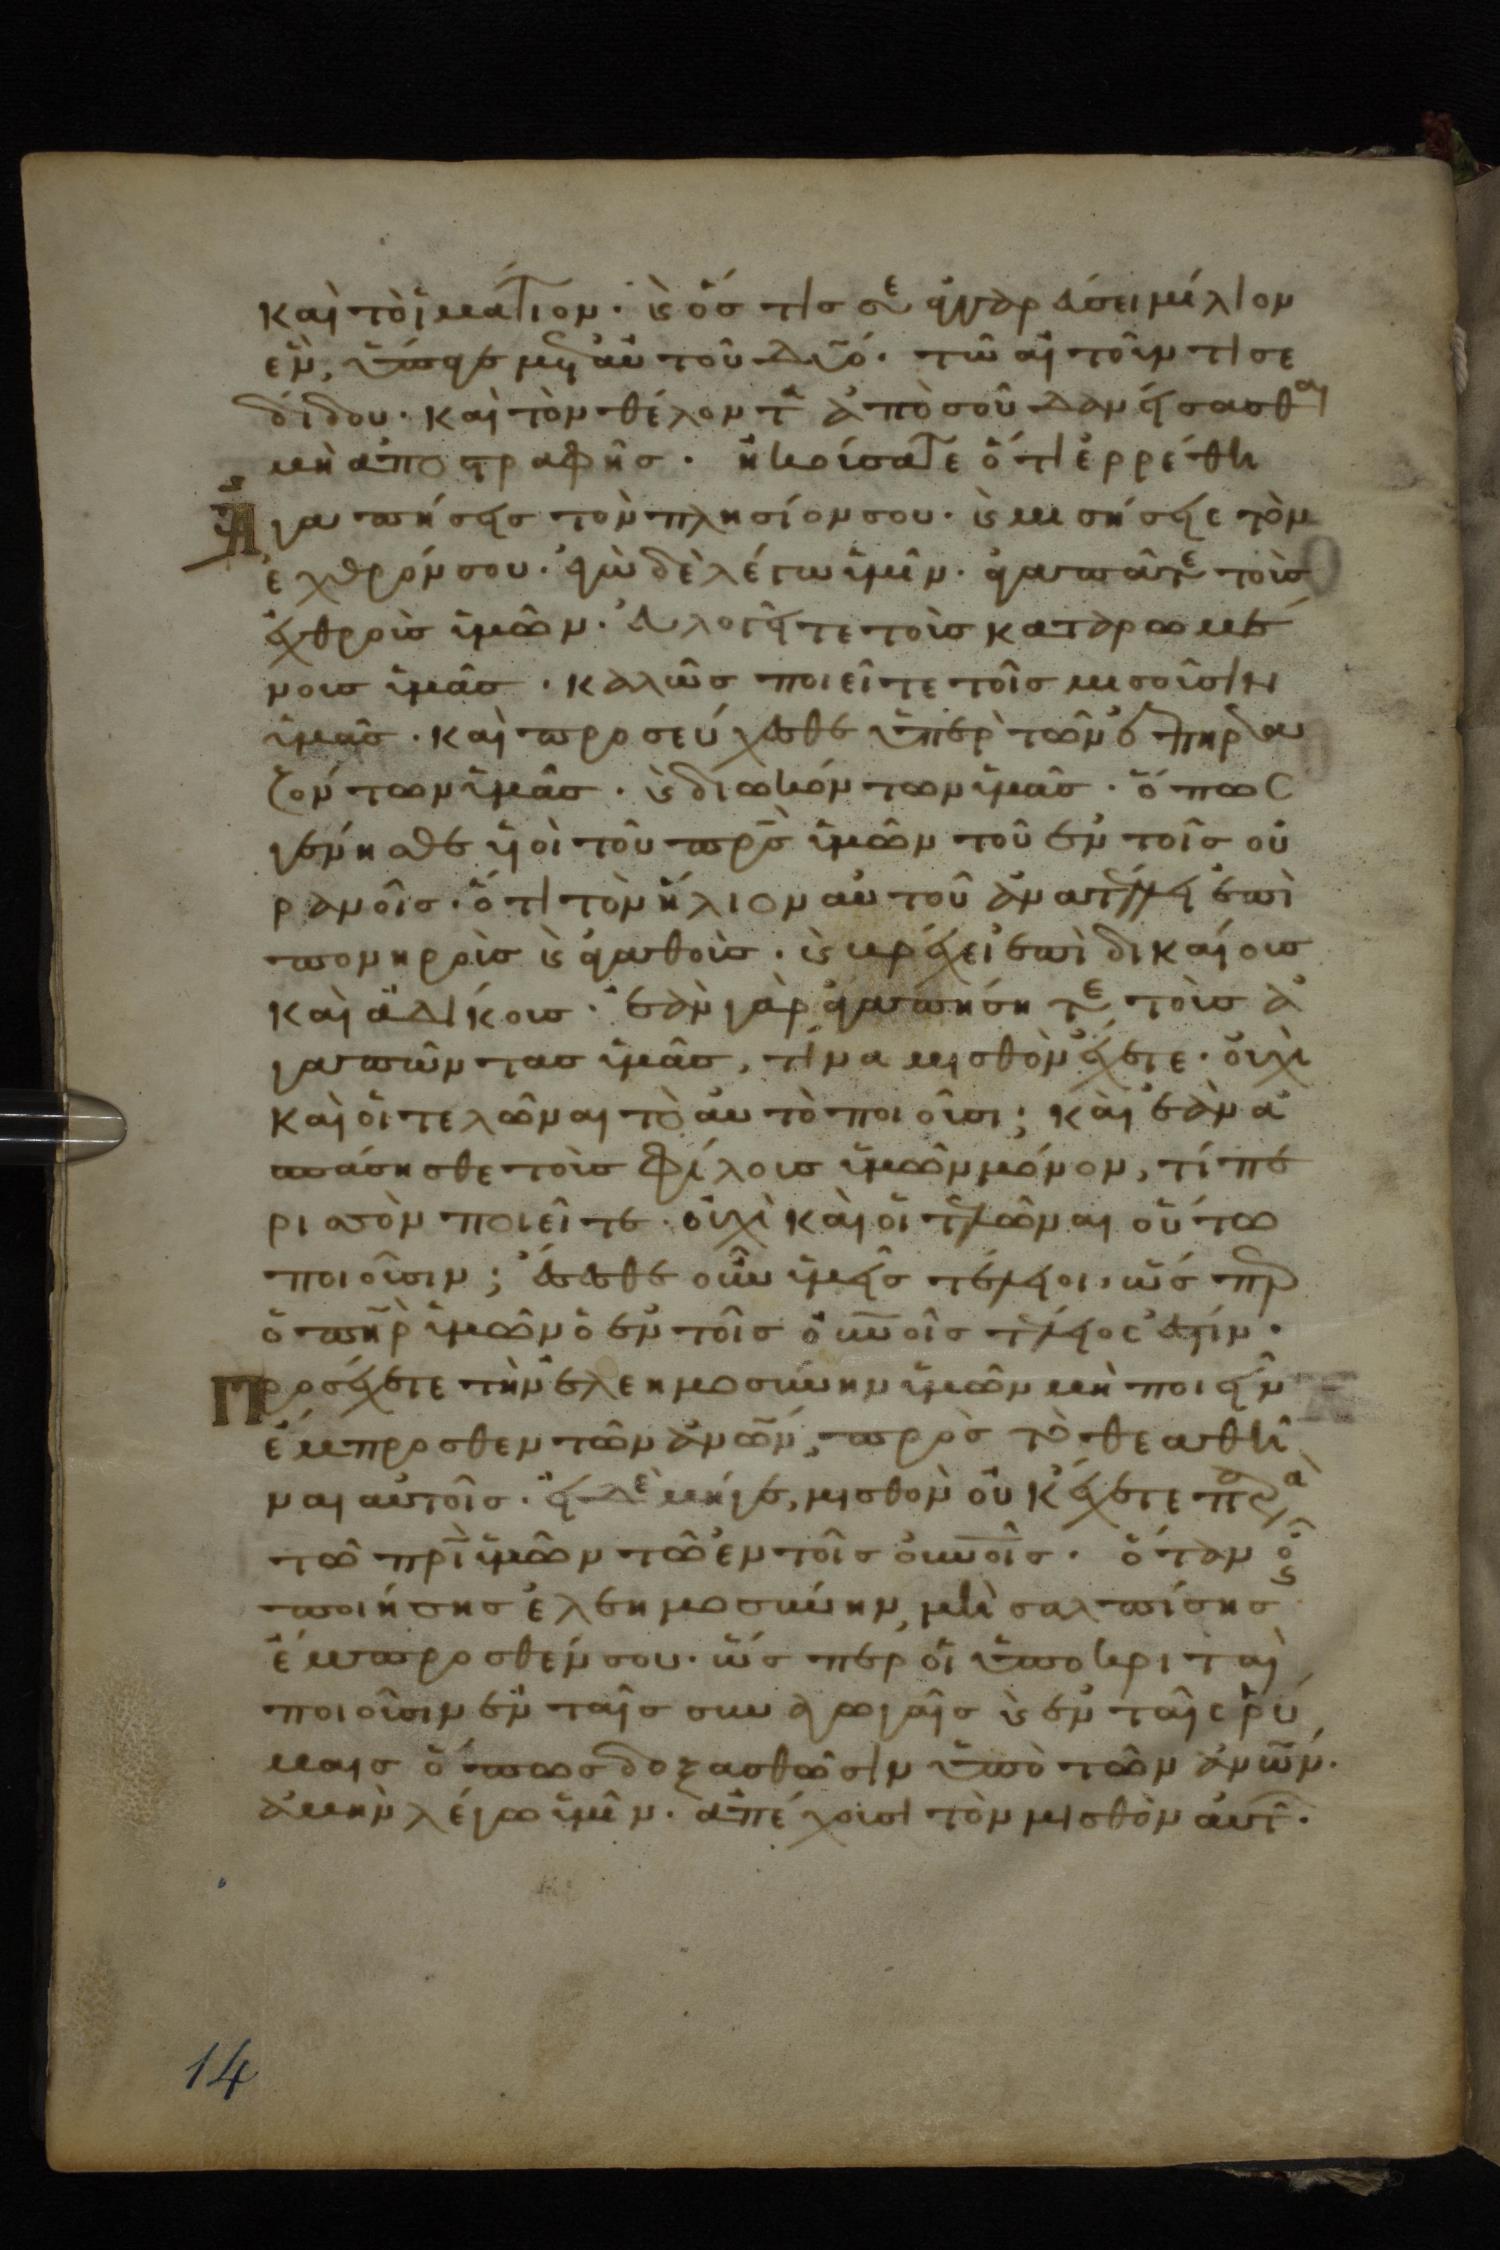 καὶ τὸ ἱμάτιον· κ ὅστις σε ἀγγαρεύσει μίλιον
ἓν, ὕπαγε μετ αὐτοῦ δύο· τῶ αἰτοῦντί σε
δίδου· καὶ τὸν θέλοντα ἀπὸ σοῦ δανείσασθαι
μὴ ἀποστραφῆς· ἠκούσατε ὅτι ἐρρέθη
Ἀγαπήσεις τὸν πλησίον σου· κ μισήσεις τὸν
ἐχθρόν σου· ἐγὼ δὲ λέγω ὑμῖν· ἀγαπᾶτε τοὺς
ἐχθροὺς ὑμῶν· εὐλογεῖτε τοὺς καταρωμέ
νους ὑμᾶς· καλῶς ποιεῖτε τοῖς μισοῦσιν
ὑμᾶς· καὶ προσεύχεσθε ὑπὲρ τῶν ἐπηρεα
ζόντων ὑμᾶς· κ διωκόντων ὑμᾶς· ὅπως
γένησθε υἱοὶ τοῦ πρς ὑμῶν τοῦ ἐν τοῖς οὐ
ρανοῖς· ὅτι τὸν ἥλιον αὐτοῦ ἀνατέλλει ἐπὶ
πονηροὺς κ ἀγαθοὺς· κ βρέχει ἐπὶ δικαίους
καὶ ἀδίκους· ἐὰν γὰρ ἀγαπήσητε τοὺς ἀ
γαπῶντας ὑμᾶς, τίνα μισθὸν ἔχετε· οὐχὶ
καὶ οἱ τελῶναι τὸ αὐτὸ ποιοῦσι; καὶ ἐὰν ἀ
σπάσησθε τοὺς φίλους ὑμῶν μόνον, τί πε
ρισσὸν ποιεῖτε· οὐχὶ καὶ οἱ τελῶναι οὕτω
ποιοῦσιν; ἔσεσθε οὖν ὑμεῖς τέλειοι, ὥσπερ
ὁ πηρ ὑμῶν ὁ ἐν τοῖς οὐνοῖς τέλειος ἐστίν·
Προσέχετε τὴν ἐλεημοσύνην ὑμῶν μὴ ποιεῖν
ἔμπροσθεν τῶν ἀνων, πρὸς τὸ θεαθῆ
ναι αὐτοῖς· εἰ δὲ μήγε, μισθὸν οὐκ ἔχετε παρὰ
τῶ πρὶ ὑμῶν τῶ ἐν τοῖς οὐνοῖς· ὅταν οὖν
ποιήσης ἐλεημοσύνην, μὴ σαλπίσης
ἔμπροσθέν σου· ὥσπερ οἱ ὑποκριταὶ
ποιοῦσιν ἐν ταῖς συναγωγαῖς κ ἐν ταῖς ῥύ
μαις ὅπως δοξασθῶσιν ὑπὸ τῶν ἀνων·
ἀμὴν λέγω ὑμῖν· ἀπέχουσι τὸν μισθὸν αὐτ·
14